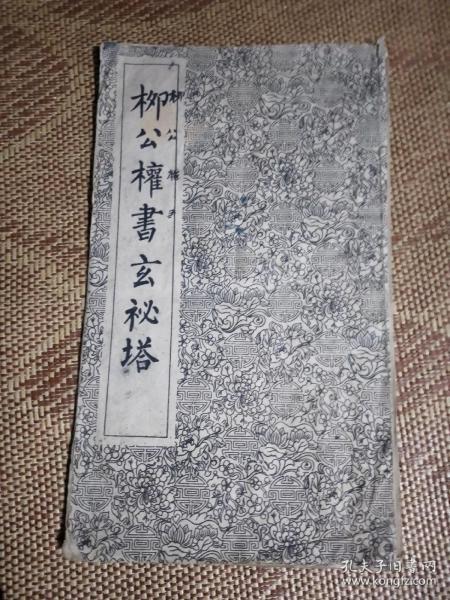 柳公權書玄祕塔
柳公權書
孔夫子旧书网
www.kongfz.com